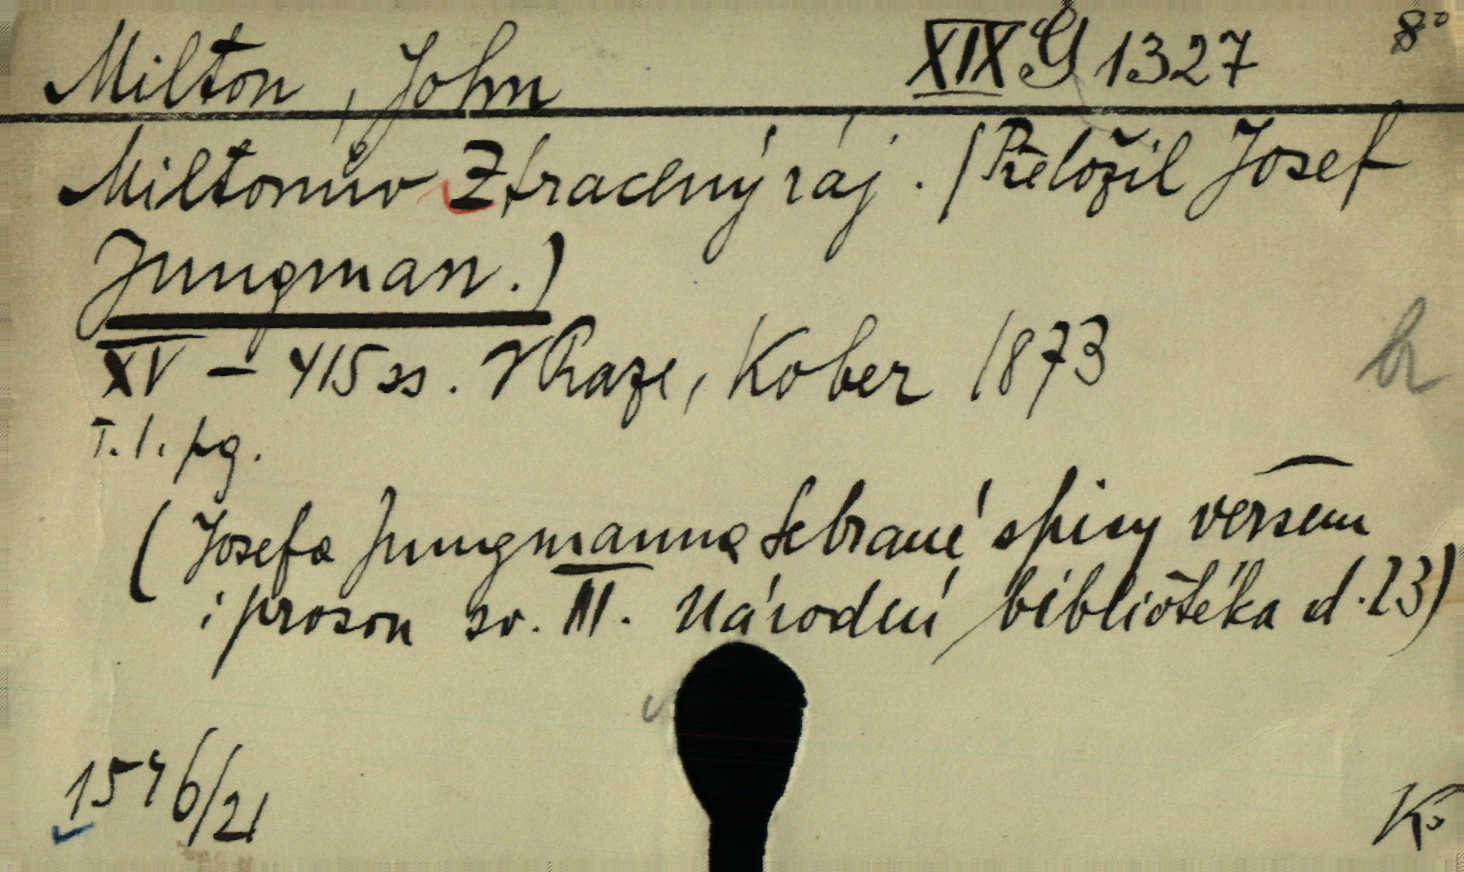 Milton, John XIX G 1327 8°
Miltonův Ztracený ráj. (Přeložil Josef
Jungman.)
XV – 415 ss. V Praze, Kober 1873
T. l. pg.
(Josefa Jungmanna Sebrané spisy veršem
i prosou sv. III. Národní bibliotéka d. 23)
1546/21